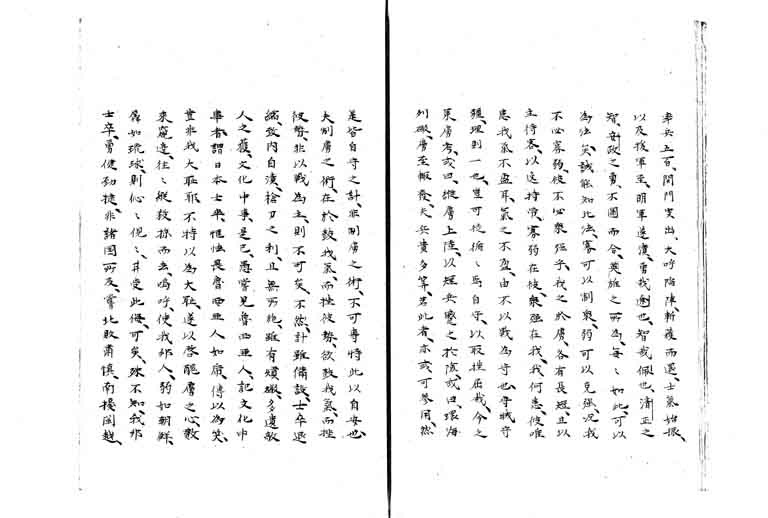 率兵五百、開門突出、大呼陷陣、斬獲而還、士氣始振、
以及援軍至、明軍遂潰、勇哉、也、智哉、也、清正之
智、安政之勇、不圖而合、英雄之所為、每々如此、可以
為法矣、誠能知此法、寡可以制衆、弱可以克強、況我
不必寡弱、彼不必衆強乎、我之於虜、各有長短、且以
主待客、以逸待勞、寡弱在彼、衆強在我、我何患彼、唯
患我氣不盈耳、氣之不盈、由不以戰為守也、守城守
疆、理則一也、豈可循々焉自守、以取挫屈哉、今之
策虜者、或曰、縱虜上陸、以短兵鏖之於陸、或曰、環海
列礮、虜至輒發、夫兵貴多算、若此者、亦或可參用、然
是皆自守之計、非制虜之術、不可專恃此以自安也、
夫制虜之術、在於鼓我氣、而挫彼勢、欲鼓我氣、而挫
彼勢、非以戰為主、則不可矣、不然、計雖備設、士卒退
縮、致內自潰、槍刀之利、且無所施、雖有煩礮、多遺敵
人之獲、文化中事是已、愚嘗見魯西亞人記文化中
事者、謂日本士卒、怯畏魯西亞人如、傳以為笑、
豈非我大恥耶、不特以為大恥、遂以啓醜虜之心、數
來窺邊、往々縱掠而去、嗚呼、使我邦人、弱如朝鮮、
孱如琉球、則々俔々、其受此侮可矣、殊不知、我邦
士卒、勇健勁捷、非諸國所及、嘗北敗肅愼、南擾閩越、